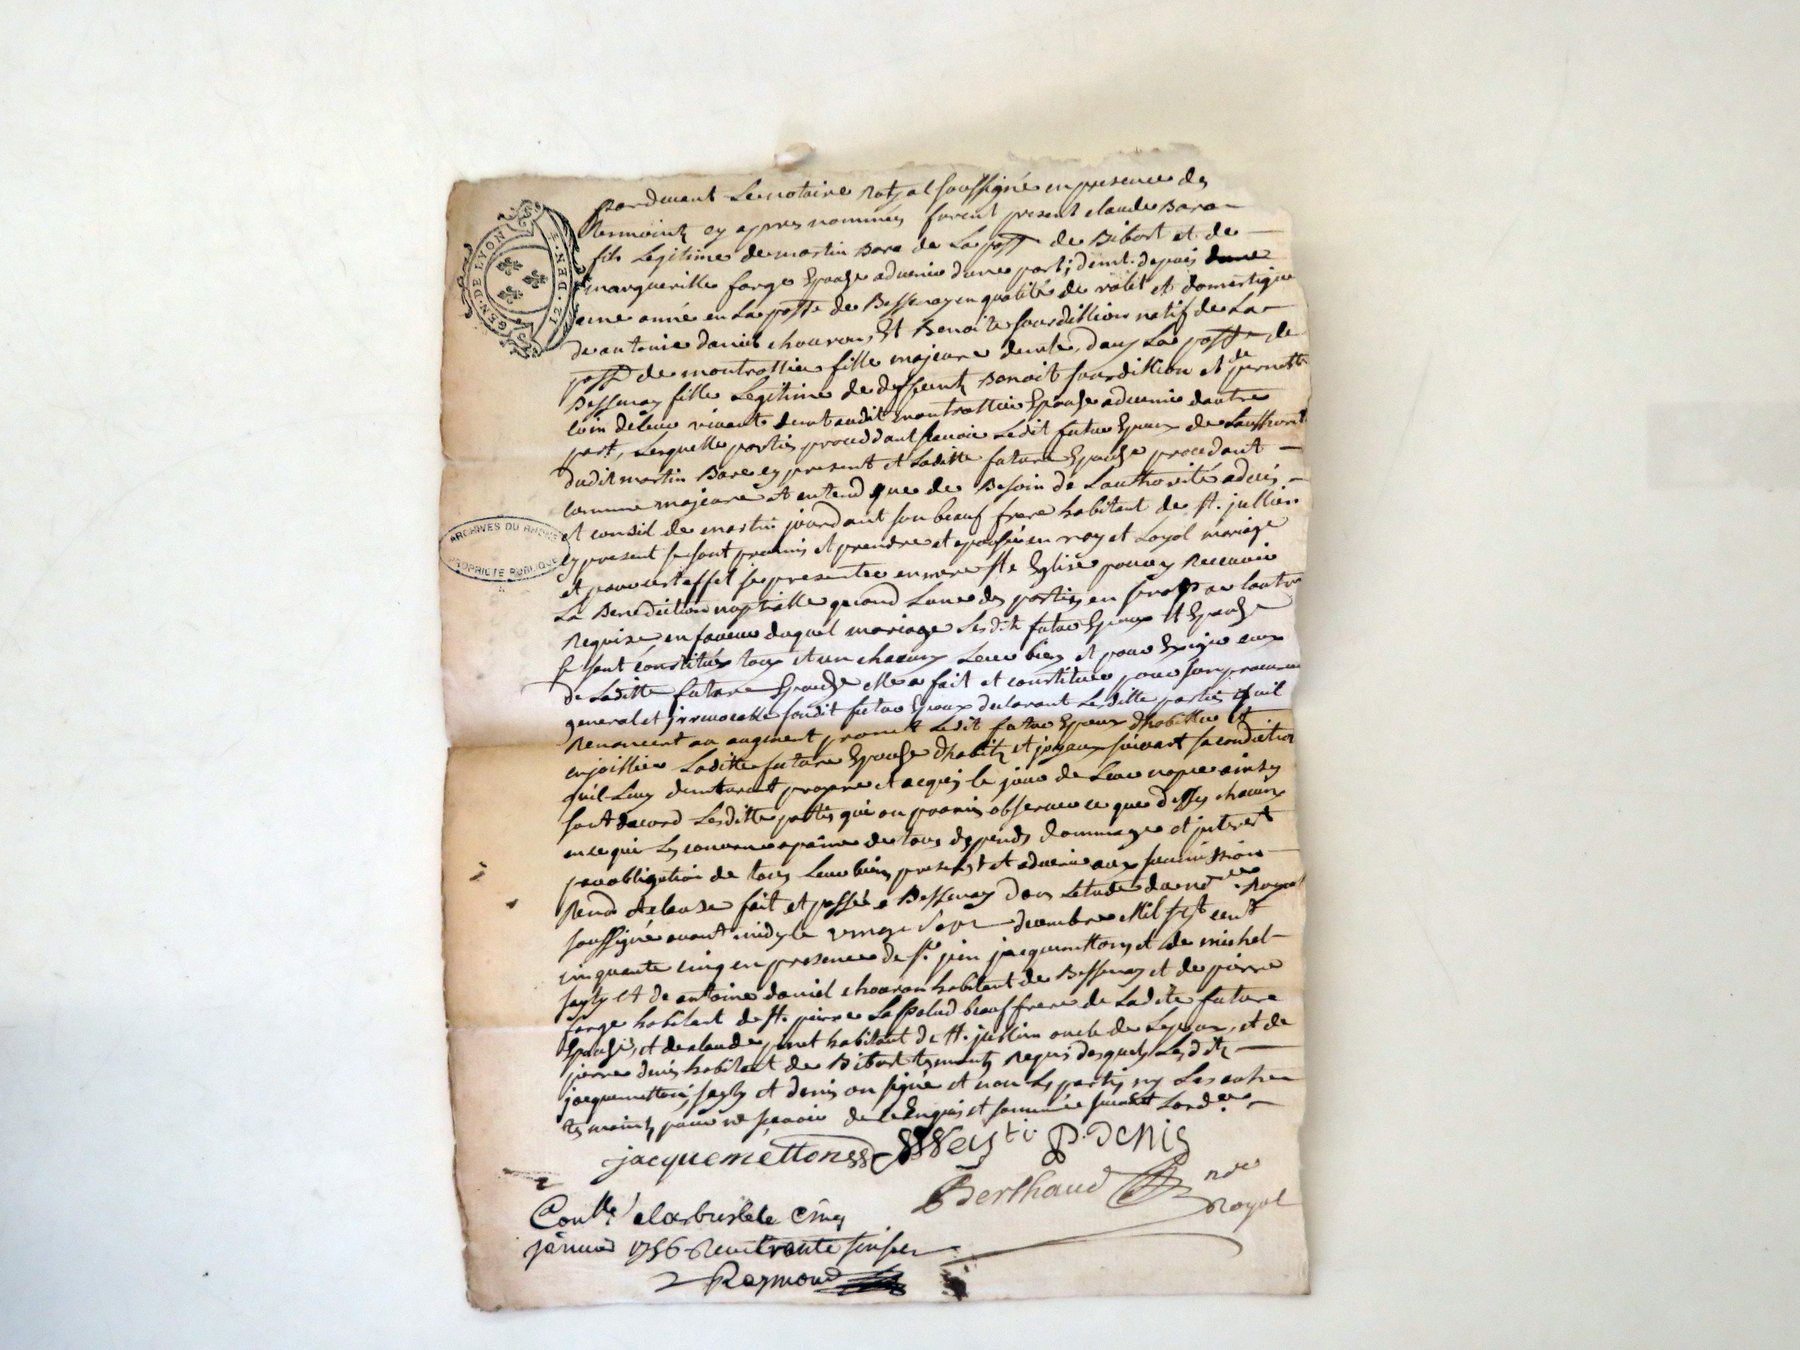 GEN. DE LYON
ARCHIVES DU RHONE
PROPRIETE PUBLIQUE
pardevant Le notaire Royal soussigné en presence des
temoins cy apres nommés furent present claude Bara
fils Legitime de martin Bara de La poss de Bibost et de
margueritte farge Epouse advenir dune part, demt. depuis
une année en La posse de Bessenay en qualité de valet et domestique
de antoine daniel chouron, Et Benoite sourdillion natif de La
poss de montrottier fille majeure demte. dans La posse de
Bessenay fille Legitime de deffeunts Benoit sourdillion et de pernette
vivants audit montrottier Epouse advenir dautre
part, Lesquelles parties proceddant scavoir Ledit futur Epoux de Lautthorité
dudit martin Bara cy present et Laditte future Epouse procedant
comme majeure et entend que de Besoin de Lauthorité advis
et conseil de martin jourdant son beauf frere habitant de st. jullien
cy present se sont promis et prendre et epouser en vray et Loyal mariage
et pour cet effet se presenter en mere ste Eglise pour y Recevoir
La Benediction nuptialle quand Lune des parties en sera par lautre
Requise, en faveur duquel mariage Lesdits futur Epoux Et Epouse
se sont constitués tous et un chacuns Leur biens et pour Exiger ceux
de Laditte future Epouse elle a fait et constitué pour son procureur
general et jrrevocable sondit futur Epoux declarant Lesditte parties quil
Renoncent au augment promet Ledit futur Epoux dhabiller Et
enjoiller Laditte future Epouse dhabits et joyaux suivant sa condition
quil Luy demeureront propre et acquis le jour de Leur nopce ainsy
sont dacord Lesditte parties qui on promis observer ce que dessus chacuns
en ce qui Les concerne a peine de tous depends dommage et jnterest
par obligation de tous Leur biens present et advenir aux soumission
Renon et clause fait et passé a Bessenay dans Letude du nore Royal
soussigné avant midy le vingt sept decembre Mil sept cent
cinquante cinq en presence de sr. jean jacquemetton et de michel
et de antoine daniel chouron habitant de Bessenay et de pierre
farge habitant de st. pierre La Palud beauf frere de Ladite future
Epouse, et de claude habitant de st. jullien oncle de Lepoux, et de
pierre denis habitant de Bibost temoints Requis desquels Lesdits
jacquemetton, et denis on signé et non Les parties ny Les autre
temoints pour ne scavoir de ce Enquis et sommée suivant Lordce.
jacquemetton P. denis
Berthaud nre
Royal
Conllé alarbresle le Cinq
janvier 1756 Recu trente six sols
Raymond